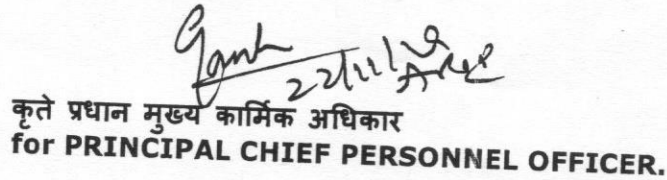 22/11/19
कृते प्रधान मुख्य कार्मिक अधिकार
for PRINCIPAL CHIEF PERSONNEL OFFICER.